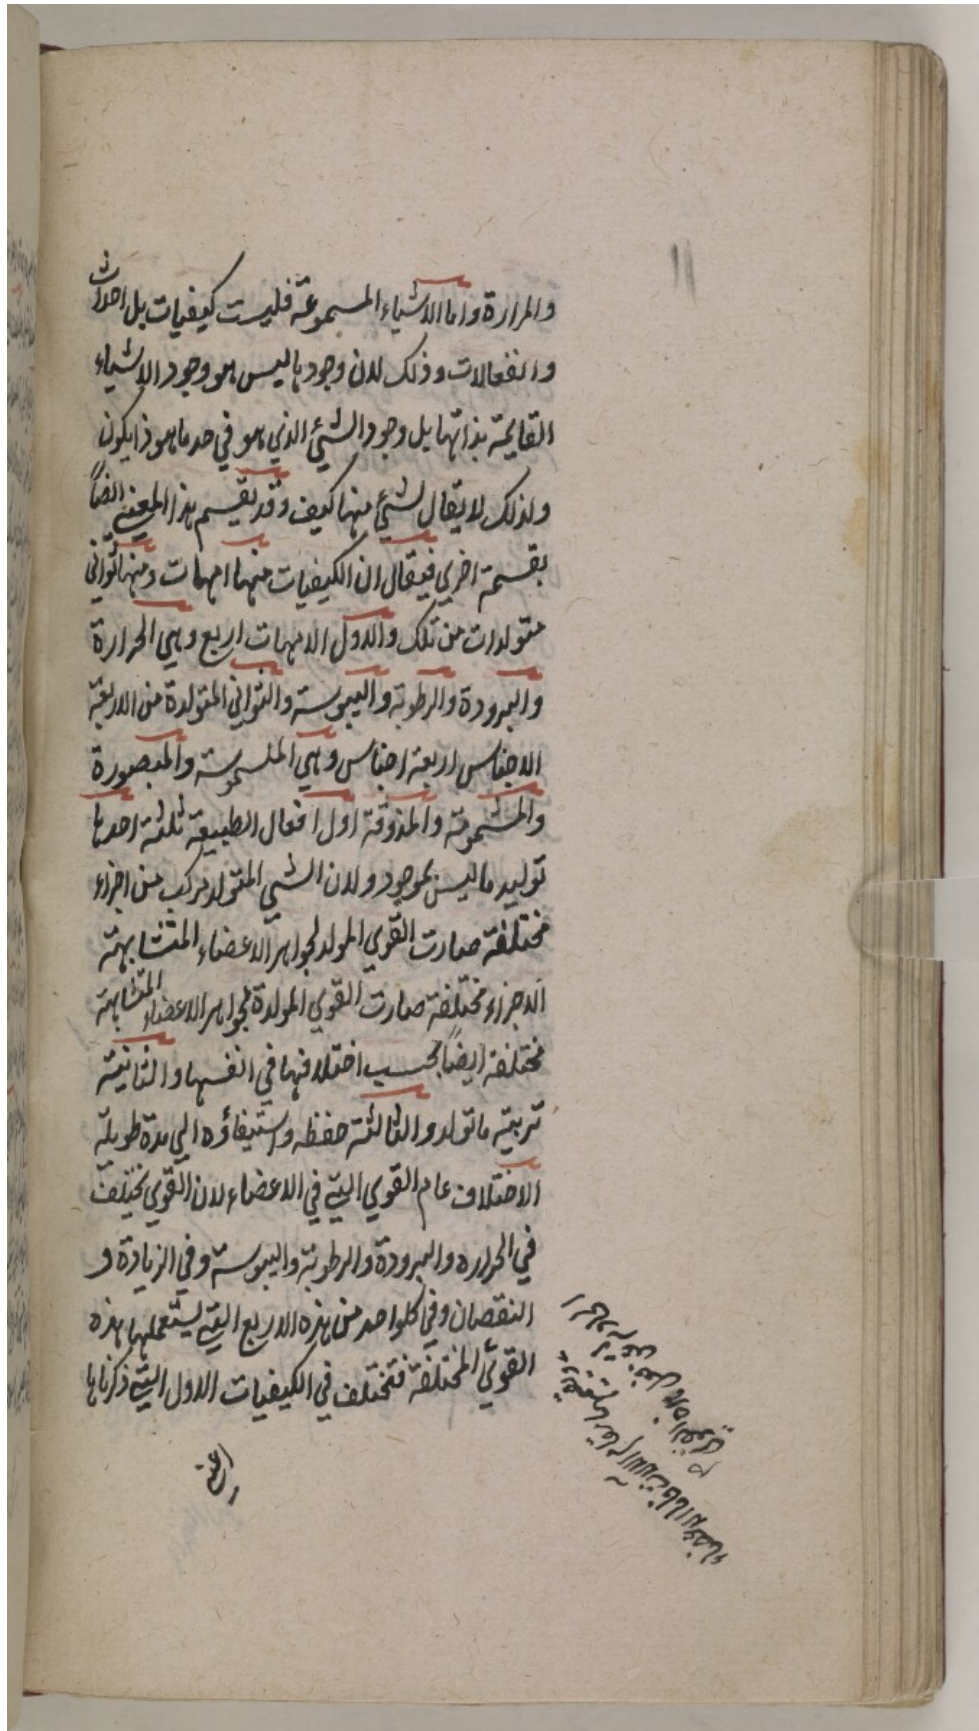 والمرارة واما الاشياء المسموعة فليست كيفيات بل احداث
وانفعالات وذلك لان وجودها ليس هو وجود الاشياء
القايمة بذاتها بل وجود الشيء الذي هو في حد ما هو ذا يكون
ولذلك لا يقال لشيء منها كيف وقد يقسم هذا المعنى ايضاً
بقسمة اخرى فيقال ان الكيفيات منها امهات ومنها ثواني
متولدات من تلك والاول الامهات اربع وهي الحرارة
والبرودة والرطوبة واليبوسة والثواني المتولدة من الاربعة
الاجناس اربعة اجناس وهي الملموسة والمبصورة
والمشمومة والمذوقة اول افعال الطبيعة ثلثة احدها
توليد ما ليس بموجود ولان الشي المتولد مركب من اجزاء
مختلفة صارت القوي المولد لجواهر الاعضاء المتشابهة
الاجزاء مختلفة صارت القوي المولدة لجواهر الاعضاء المتشابهة
مختلفة ايضاً بحسب اختلافها في انفسها والثانية
تربية ما تولد والثالثة حفظه واستيفاؤه الي مدة طويلة
الاختلاف عام القوي التي في الاعضاء لان القوي تختلف
في الحراره والبرودة والرطوبة واليبوسة وفي الزيادة و
النقصان وفي كلواحد من هذه الاربع التي يستعملها هذه
القوي المختلفة فتختلف في الكيفيات الاول التي ذكرناها